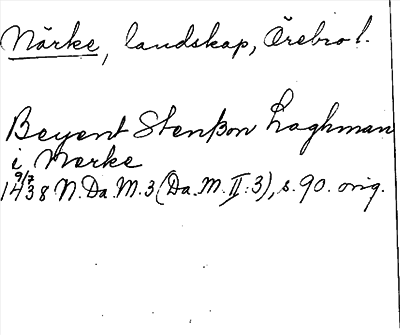 Närke, landskap, Örebro l.
Beyent Stenßon Laghman
i Nerke
9/7
1438 N. Da. M. 3 (Da. M. II:3), s. 90. orig.